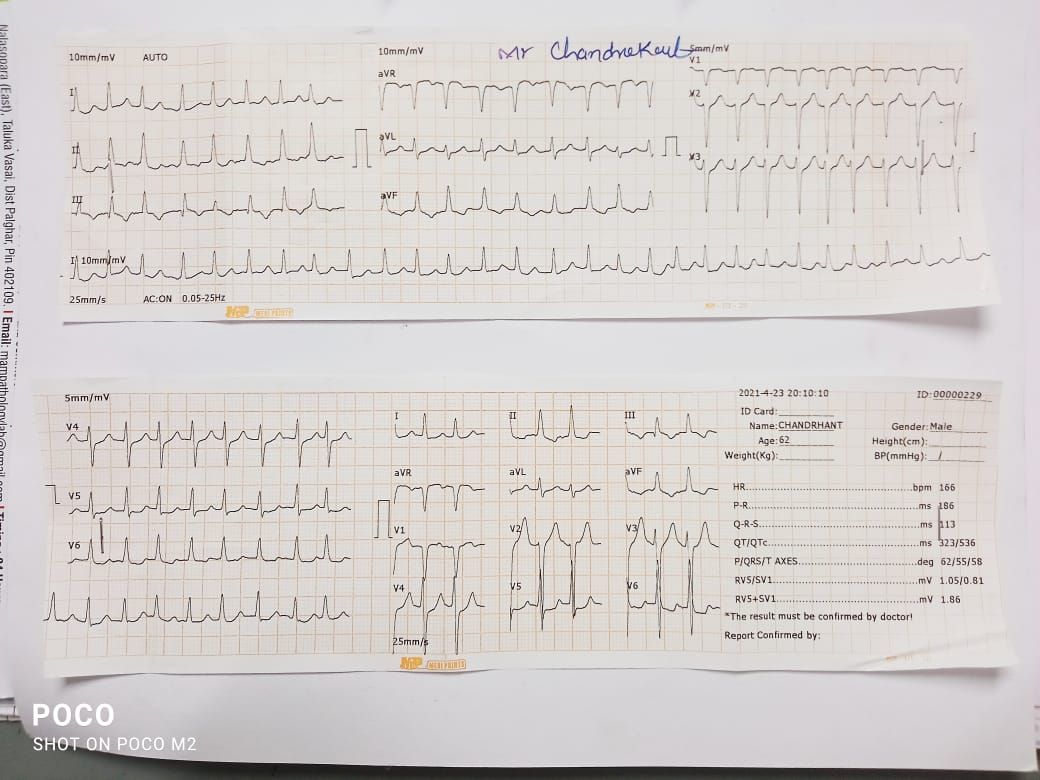 Nalasopara (East), Taluka Vasai, Dist Palghar, Pin 402109. | Email: mampathologylab@gmail.com |
10mm/mV AUTO
10mm/mV
Mr
5mm/mV
I
II
III
aVR
aVL
aVF
V1
V2
V3
10mm/mV
25mm/s AC:ON 0.05-25Hz
MEDI PRINTS
5mm/mV
V4
V5
V6
I
II
III
aVR
aVL
aVF
V1
V2
V3
V4
V5
V6
25mm/s
MEDI PRINTS
2021-4-23 20:10:10 ID:00000229
ID Card:
Name:CHANDRHANT Gender:Male
Age:62 Height(cm):
Weight(Kg): BP(mmHg): /
HR bpm 166
P-R ms 186
Q-R-S ms 113
QT/QTc ms 323/536
P/QRS/T AXES deg 62/55/58
RV5/SV1 mV 1.05/0.81
RV5+SV1 mV 1.86
*The result must be confirmed by doctor!
Report Confirmed by:
POCO
SHOT ON POCO M2